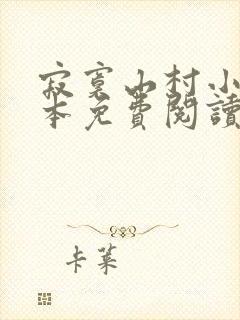 寂寞山村小
本免費閱讀
卡萊